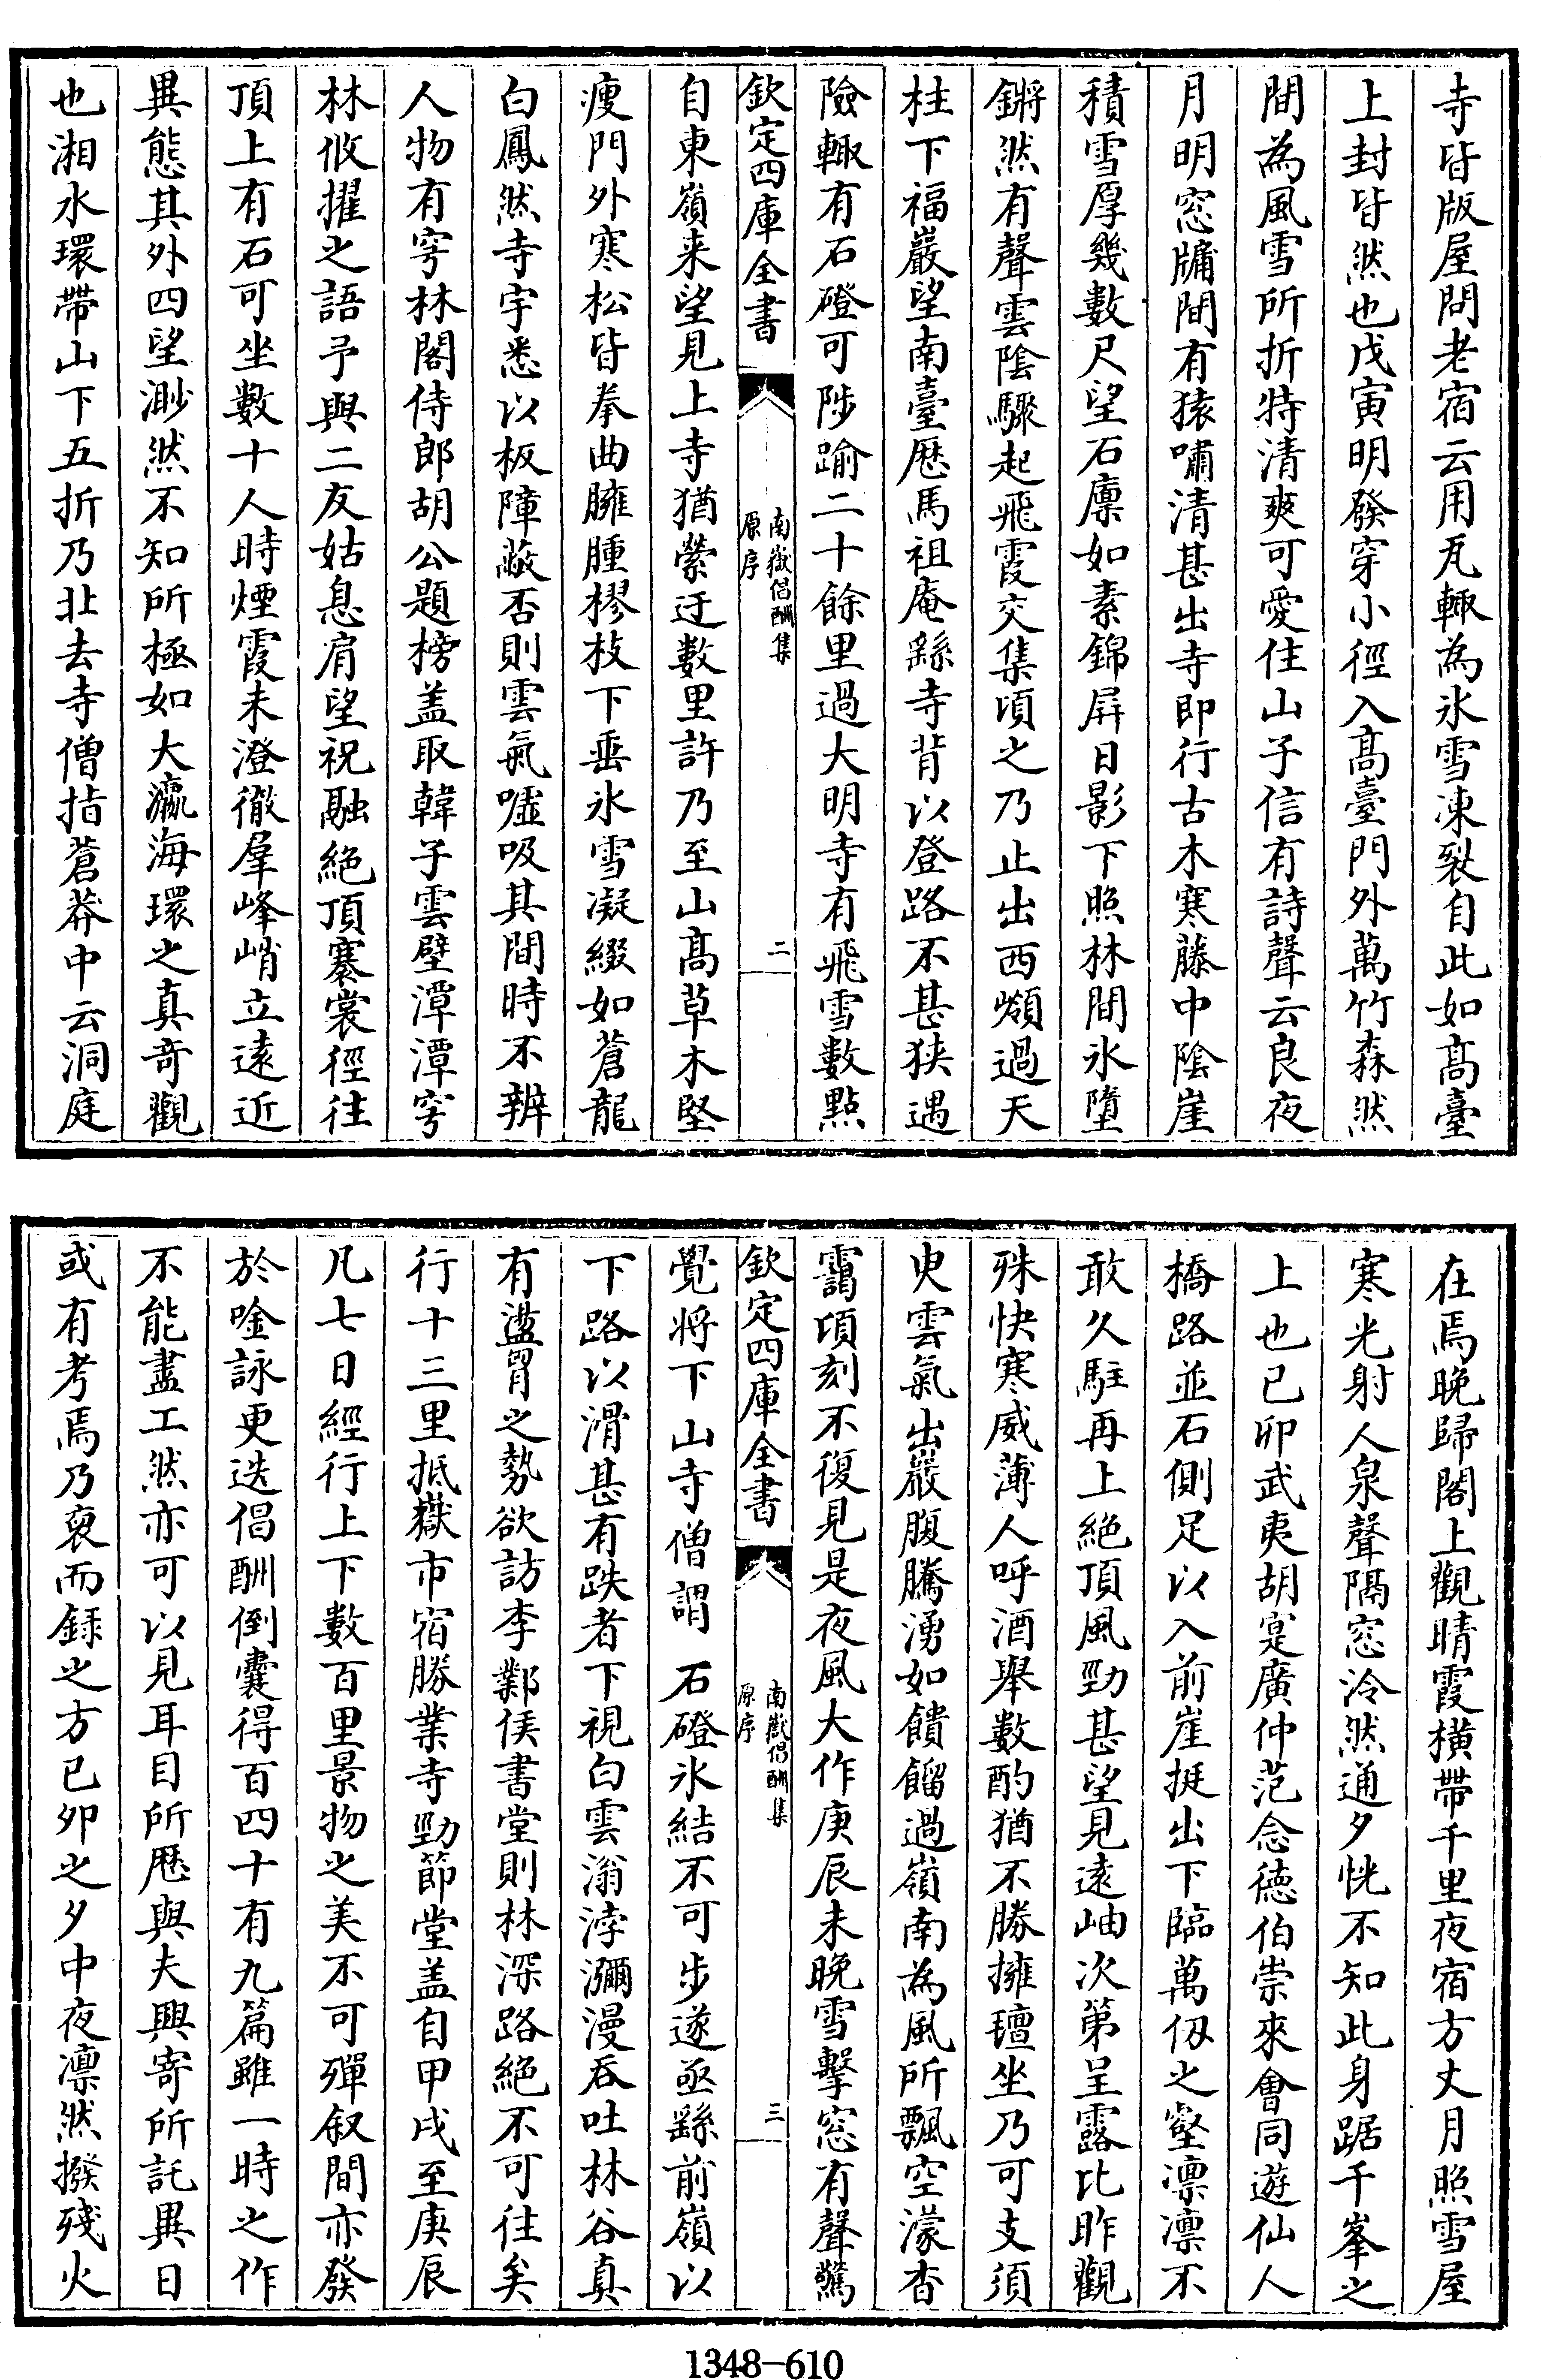 寺皆版屋問老宿云用瓦輙為氷雪凍裂自此如髙臺
上封皆然也戊寅明發穿小徑入髙臺門外萬竹森然
間為風雪所折特清爽可愛住山子信有詩聲云良夜
月明窓牖間有猿嘯清甚出寺即行古木寒藤中陰崖
積雪厚幾數尺望石廪如素錦屏日影下照林間氷墮
鏘然有聲雲陰驟起飛霞交集頃之乃止出西嶺過天
柱下福巖望南臺厯馬祖庵繇寺背以登路不甚狹遇
險輙有石磴可陟踰二十餘里過大明寺有飛雪數點
欽定四庫全書
南嶽倡酬集
原序
二
自東嶺来望見上寺猶縈迂數里許乃至山髙草木堅
瘦門外寒松皆拳曲臃腫樛枝下垂氷雪凝綴如蒼龍
白鳳然寺宇悉以板障蔽否則雲氣噓吸其間時不辨
人物有穹林閣侍郎胡公題榜盖取韓子雲壁潭潭穹
林攸擢之語予與二友姑息肩望祝融絶頂褰裳徑往
頂上有石可坐數十人時煙霞未澄徹羣峰峭立遠近
異態其外四望渺然不知所極如大瀛海環之真竒觀
也湘水環帶山下五折乃北去寺僧指蒼莽中云洞庭
在焉晚歸閣上觀晴霞横帶千里夜宿方丈月照雪屋
寒光射人泉聲隔窓泠然通夕恍不知此身踞千峯之
上也已卯武夷胡寔廣仲范念徳伯崇來會同遊仙人
橋路並石側足以入前崖挺出下臨萬仭之壑凛凛不
敢久駐再上絶頂風勁甚望見遠岫次第呈露比昨觀
殊快寒威薄人呼酒舉數酌猶不勝擁氊坐乃可支須
臾雲氣出巖腹騰湧如饋餾過嶺南為風所飄空濛杳
靄頃刻不復見是夜風大作庚辰未晚雪擊窓有聲驚
欽定四庫全書
南嶽倡酬集
原序
三
覺將下山寺僧謂石磴氷結不可步遂亟繇前嶺以
下路以滑甚有跌者下視白雲滃浡瀰漫吞吐林谷真
有盪胷之勢欲訪李鄴侯書堂則林深路絶不可往矣
行十三里抵嶽市宿勝業寺勁節堂盖自甲戌至庚辰
凡七日經行上下數百里景物之美不可殫叙間亦發
於唫詠更迭倡酬倒囊得百四十有九篇雖一時之作
不能盡工然亦可以見耳目所厯與夫興寄所託異日
或有考焉乃裒而録之方已卯之夕中夜凛然撥殘火
1348-610